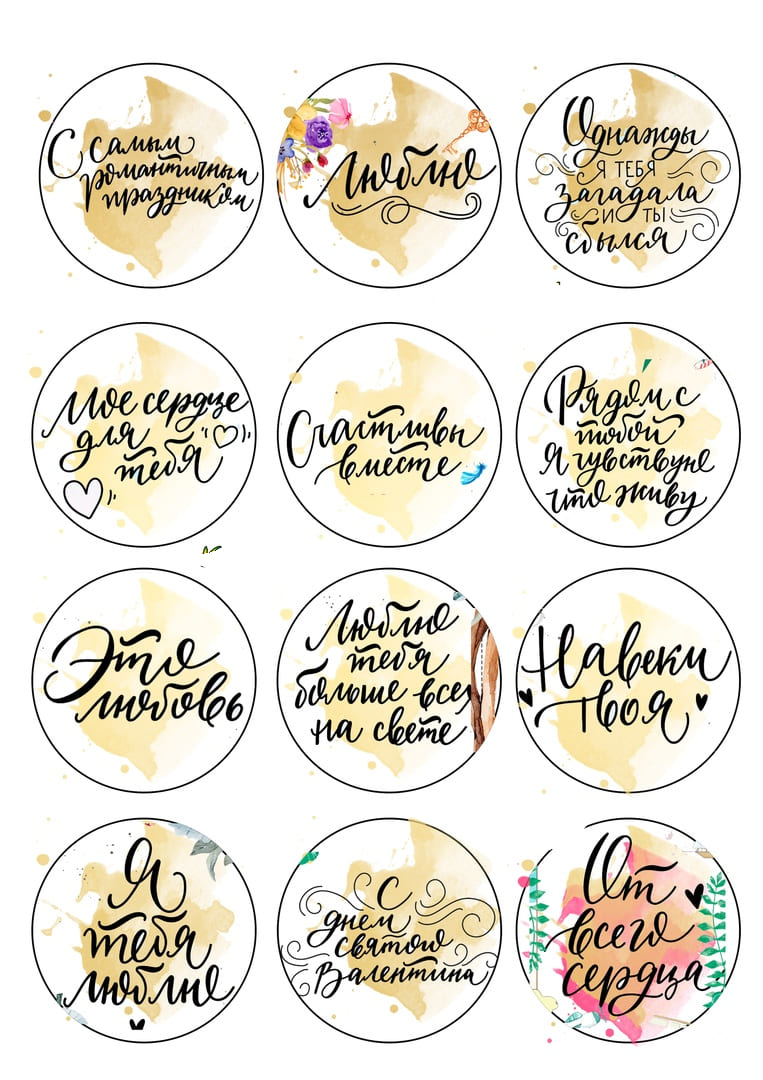 С самым
романтичным
праздником
Люблю
Однажды
Я ТЕБЯ
загадала
И ТЫ
сбылся
Мое сердце
для
тебя
Счастливы
вместе
Рядом с
тобой
я чувствую
что живу
Это
любовь
Люблю
тебя
больше всех
на свете
Навеки
твоя
Я
тебя
люблю
С
днем
святого
Валентина
От
всего
сердца